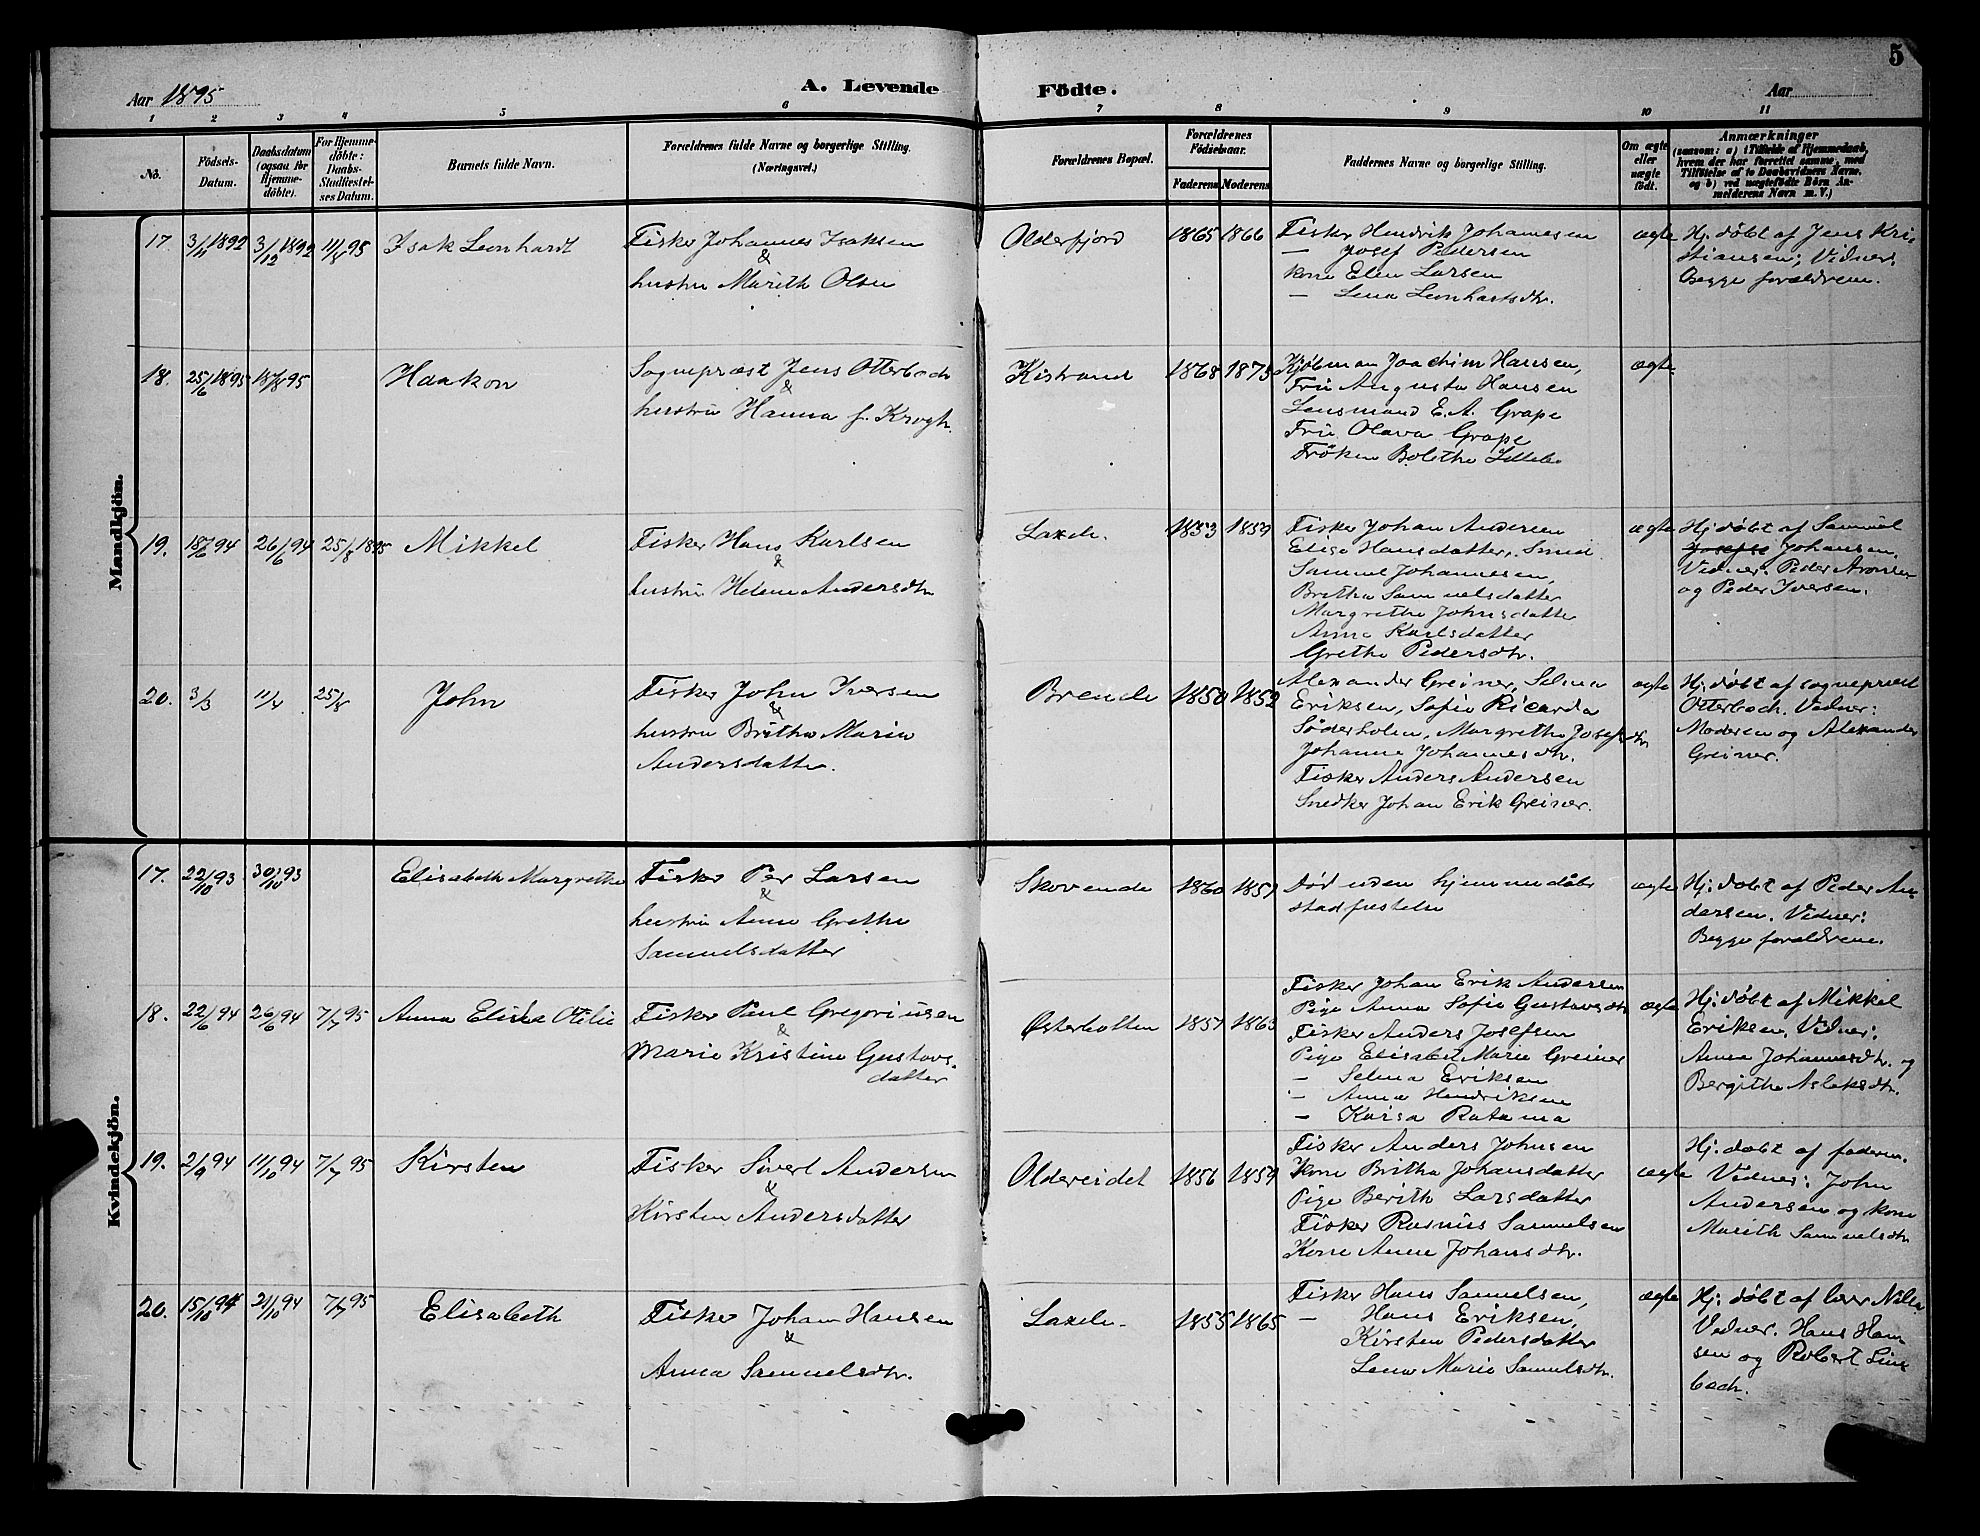 5
Aar 1895
A. Levende Födte.
Aar
1 2 3 4 5 6 7 8 9 10 11
No.
Födsels-Datum.
Daabsdatum (ogsaa for Hjemmedöbte).
For Hjemmedöbte: Daabs-Stadfæstelses Datum.
Barnets fulde Navn.
Forældrenes fulde Navne og borgerlige Stilling.
(Næringsvei.)
Forældrenes Bopæl.
Forældrenes Födselsaar.
Faderens Moderens
Faddernes Navne og borgerlige Stilling.
Om ægte eller uægte födt.
Anmærkninger
(saasom: a) i Tilfælde af Hjemmedaab, hvem der har forrettet samme, med Tilföielse af to Daabsvidners Navne, og b) ved uægtefödte Börn Anmelderens Navn m. V.)
Mandkjön.
17. 3/11 1892 3/12 1892 11/8 95 Isak Leonhardt
Fisker Johannes Isaksen
&
hustru Marith Olsen
Olderfjord 1865 1866
Fisker Hendrik Johannesen
— Josef Pedersen
kone Elen Larsen
— Lena Leonhartsdtr.
ægte
Hj. döbt af Jens Kri-
stiansen; Vidner:
Begge forældrene.
18. 25/6 1895 18/8 95 Haakon
Sogneprest Jens Otterbech
&
hustru Hanna f. Krogh.
Kistrand 1868 1873
Kjöbman Joachim Hansen,
Fru Augusta Hansen
Lensmand E. A. Grape
Fru Olava Grape
Fröken Bolethe
ægte
19. 18/6 94 26/6 94 25/8 1895 Mikkel
Fisker Hans Karlsen
&
hustru Helene Andersdtr.
Laxelv. 1853 1859
Fisker Johan Andersen
Elise Hansdatter, Smed
Samuel Johannesen,
Britha Samuelsdatter
Margrethe Johnsdatter
Anne Karlsdatter
Grethe Pedersdtr.
ægte
Hj. döbt af Samuel
Johansen.
Vidner: Peder Aronsen
og Peder Iversen.
20. 3/3 11/4 25/8 John
Fisker John Iversen
&
hustru Britha Maria
Andersdatter.
Brende 1850 1852
Alexander Greiner, Selma
Eriksen, Sofie Ricarda
Söderholm, Margrethe Josefsdtr
Johanne Johannesdtr.
Fisker Anders Andersen
Snedker Johan Erik Greiner.
ægte
Hj. döbt af sogneprest
Otterbech. Vidner:
Moderen og Alexander
Greiner.
Kvindekjön.
17. 22/10 93 30/10 93 Elisabeth Margrethe
Fisker Per Larsen
&
hustru Anne Grethe
Samuelsdatter
Skovende 1860 1857
död uden hjemmedåbs
stadfestelse
ægte
Hj. döbt af Peder An-
dersen. Vidner:
Begge forældrene.
18. 22/6 94 26/6 94 7/7 95 Anna Elisha Otilie
Fisker Paul Gregoriusen
&
Marie Kristine Gustavs-
datter
Østerbotten 1857 1863
Fisker Johan Erik Andersen
Pige Anna Sofie Gustavsdtr
Fisker Anders Josefsen
Pige Elisabet Marie Greiner
— Selma Eriksen
— Anna Hendriksen
— Kaisa Ratama
ægte
Hj. döbt af Mikkel
Eriksen. Vidner:
Anna Johannesdtr. og
Bergithe Aslaksdtr.
19. 2/9 94 11/10 94 7/7 95 Kirsten
Fisker Sivert Andersen
&
Kirsten Andersdatter
Oldereidet 1856 1859
Fisker Anders Johnsen
Kone Britha Johansdatter
Pige Berith Larsdatter
Fisker Rasmus Samuelsen
Kone Anne Johansdtr.
ægte
Hj. döbt af faderen.
Vidner: John
Andersen og kone
Marith Samuelsdtr
20. 15/10 94 21/10 94 7/7 95 Elisabeth
Fisker Johan Hansen
&
Anna Samuelsdtr.
Laxelv. 1855 1865
Fisker Hans Samuelsen,
— Hans Eriksen,
Kirsten Pedersdatter
Lena Marie Samuelsdtr.
ægte
Hj. döbt af lærer Nilsen
Vidner. Hans Han-
sen og Robert Lind-
bech.